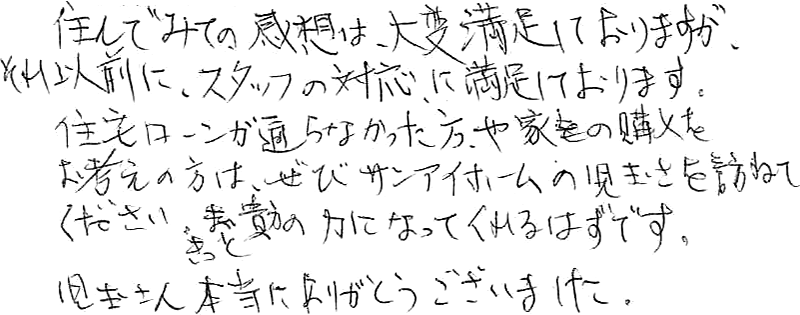 住んでみての感想は、大変満足しておりますが、
それ以前に、スタッフの対応に満足しております。
住宅ローンが通らなかった方や家の購入を
お考えの方は、ぜひサンアイホームの児玉さを訪ねて
ください。きっと貴方の力になってくれるはずです。
児玉さん本当にありがとうございました。